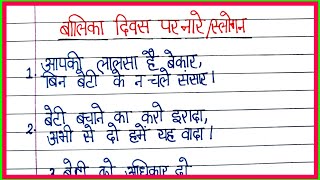 बालिका दिवस पर नारे/स्लोगन
1. आपकी लालसा है बेकार,
बिन बेटी के न चले संसार।
2. बेटी बचाने का करो इरादा,
अभी से दो हमें यह वादा।
3. बेटी को अधिकार दो